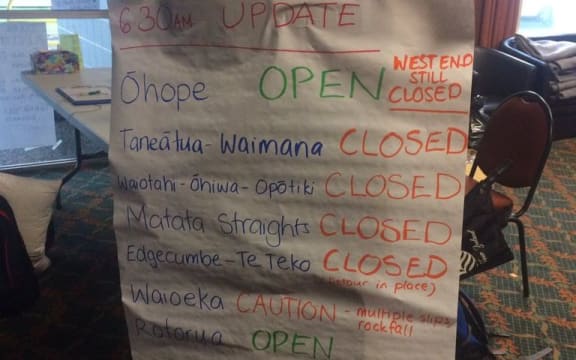 630AM UPDATE
Ōhope OPEN WEST END
STILL
CLOSED
Taneātua-Waimana CLOSED
Waiotahi-Ōhiwa-Opōtiki CLOSED
Matata Straights CLOSED
Edgecumbe-Te Teko CLOSED
(detour in place)
Waioeka CAUTION - multiple slips
rockfall
Rotorua OPEN